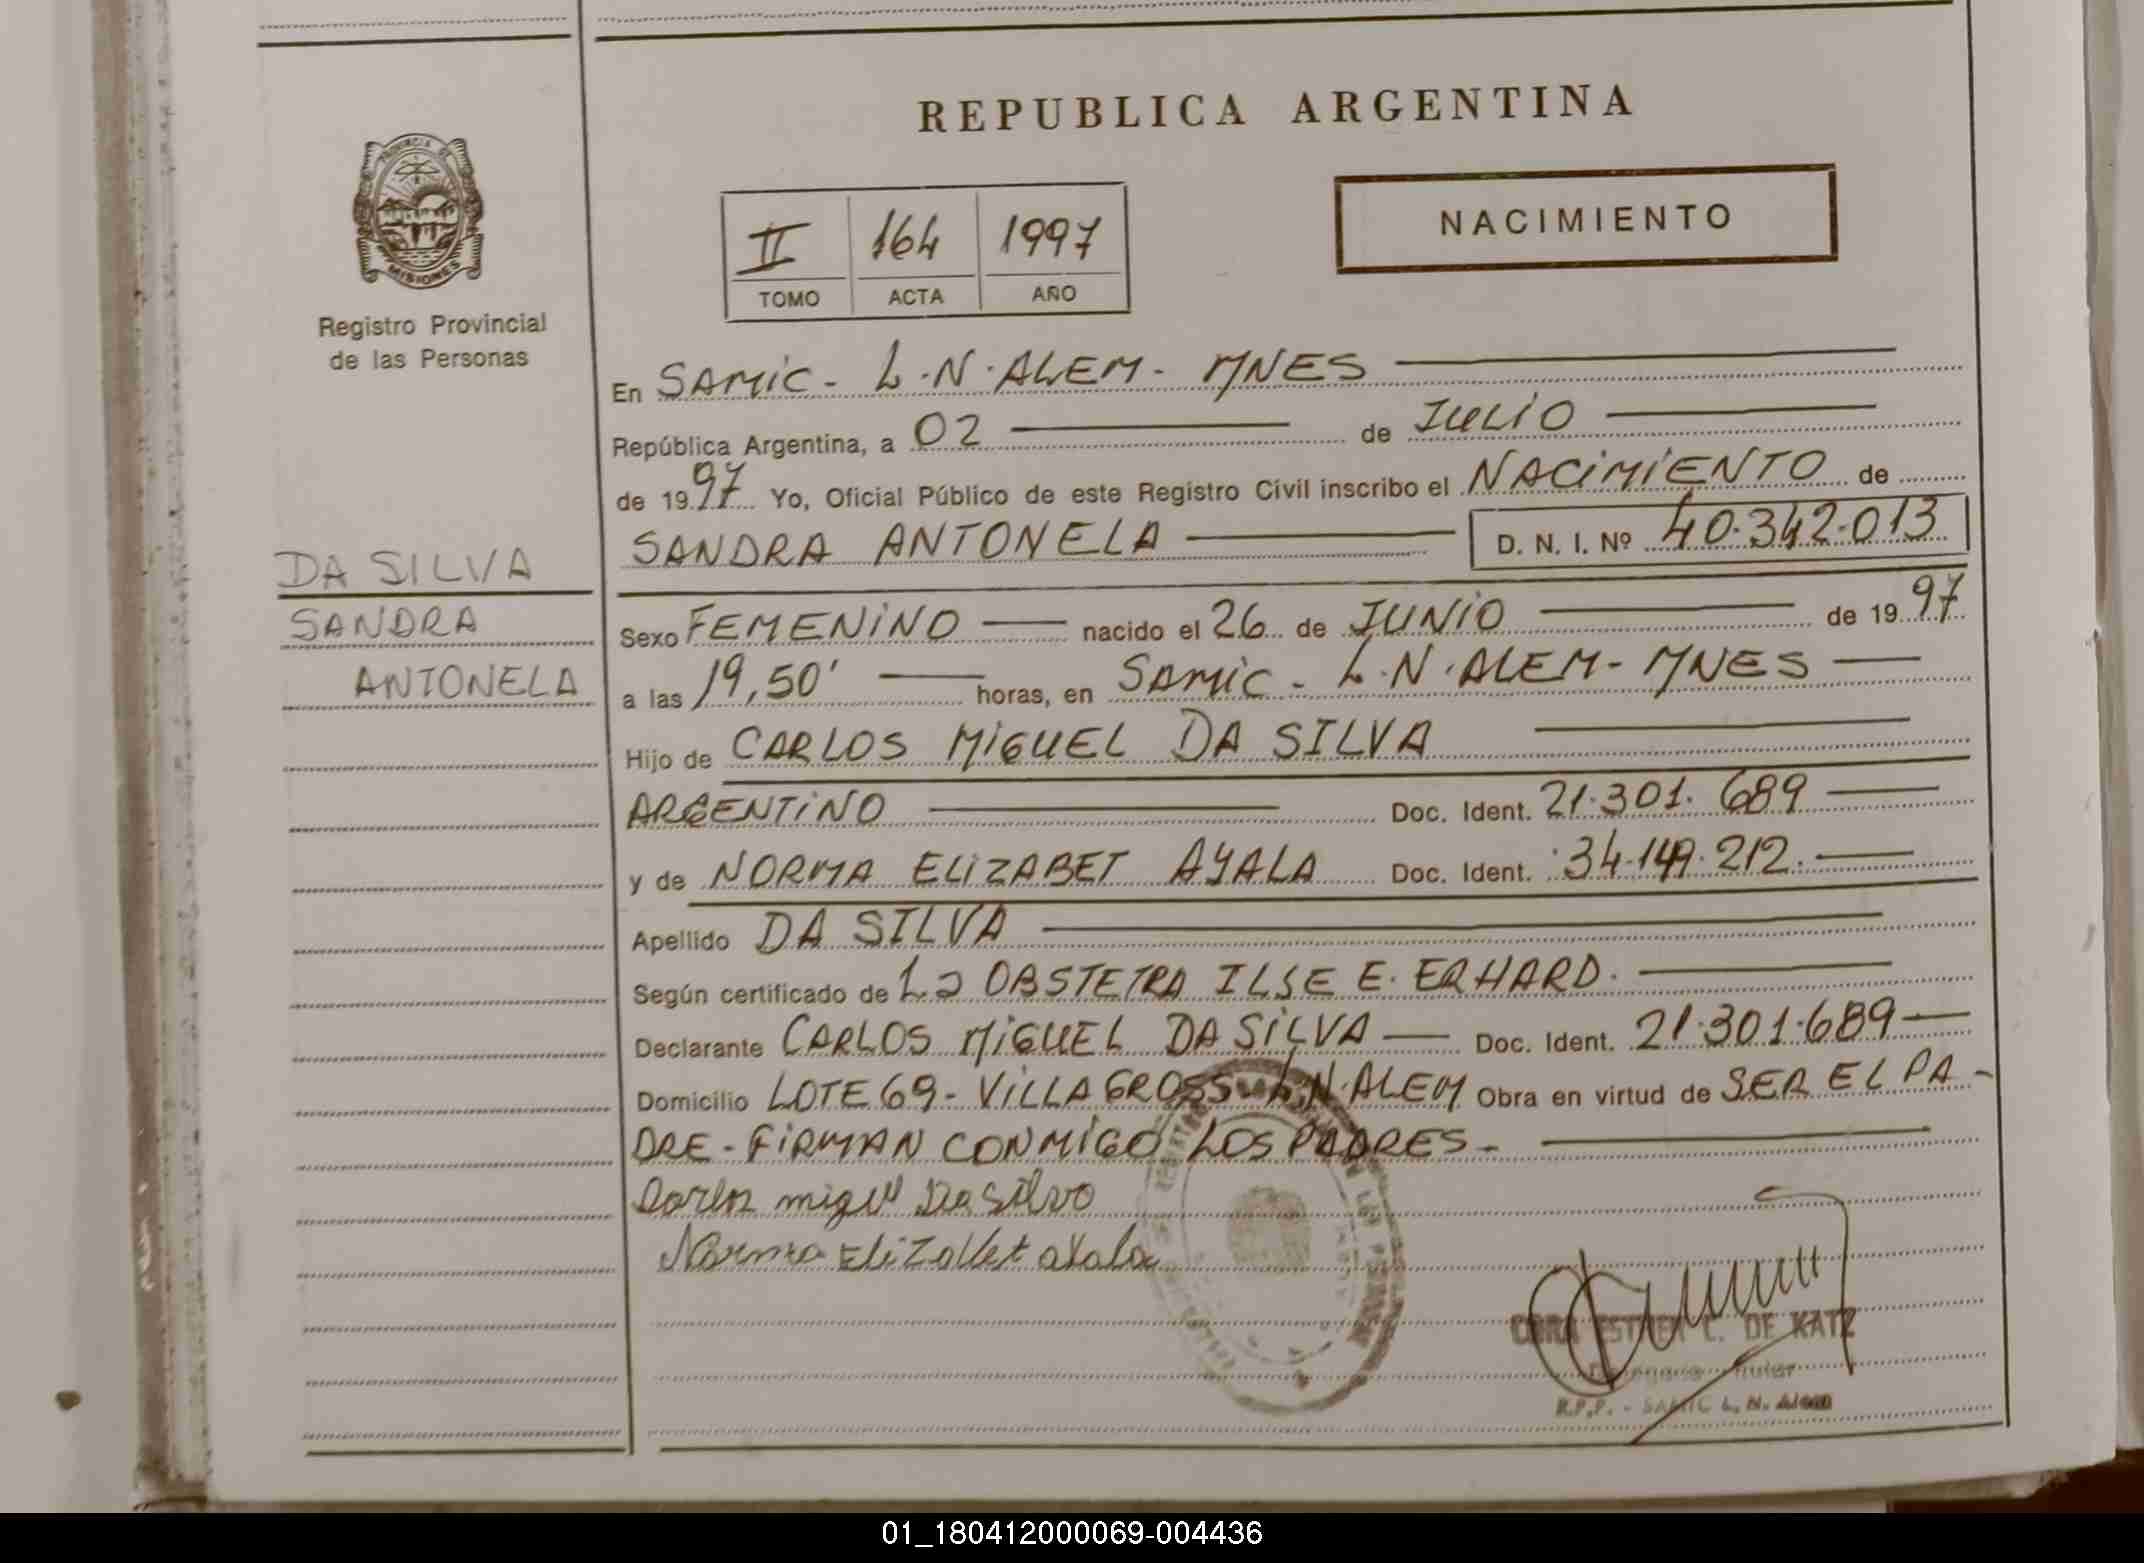 REPUBLICA ARGENTINA
PROVINCIA DE
MISIONES
Registro Provincial
de las Personas
II 164 1997
TOMO ACTA AÑO
NACIMIENTO
En SAMIC - L.N. ALEM - MNES
República Argentina, a 02 de JULIO
de 1997 Yo, Oficial Público de este Registro Civil inscribo el NACIMIENTO de
SANDRA ANTONELA D. N. I. Nº 40.342.013
DA SILVA
SANDRA
ANTONELA
Sexo FEMENINO nacido el 26 de JUNIO de 1997
a las 19,50' horas, en SAMIC - L.N. ALEM - MNES
Hijo de CARLOS MIGUEL DA SILVA
ARGENTINO Doc. Ident. 21.301.689
y de NORMA ELIZABET AYALA Doc. Ident. 34.149.212.
Apellido DA SILVA
Según certificado de La OBSTETRA ILSE E. ERHARD.
Declarante CARLOS MIGUEL DA SILVA Doc. Ident. 21.301.689
Domicilio LOTE 69 - VILLA GROSS L.N. ALEM Obra en virtud de SER EL PA-
DRE - FIRMAN CONMIGO LOS PADRES -
Carlos miguel Da Silva
Norma Elizabet ayala
ESTHER C. DE KATZ
R.P.P. - SAMIC L. N. Alem
01_180412000069-004436